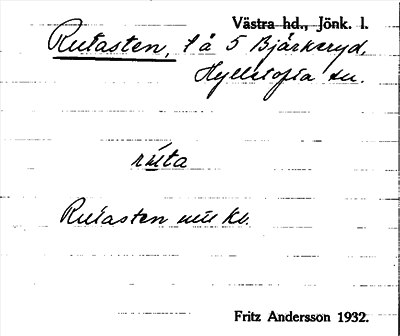 Västra hd., Jönk. l.
Rutasten, l å 5 Bjärkeryd,
Hylletofta sn.
rúta
Rutasten
Fritz Andersson 1932.